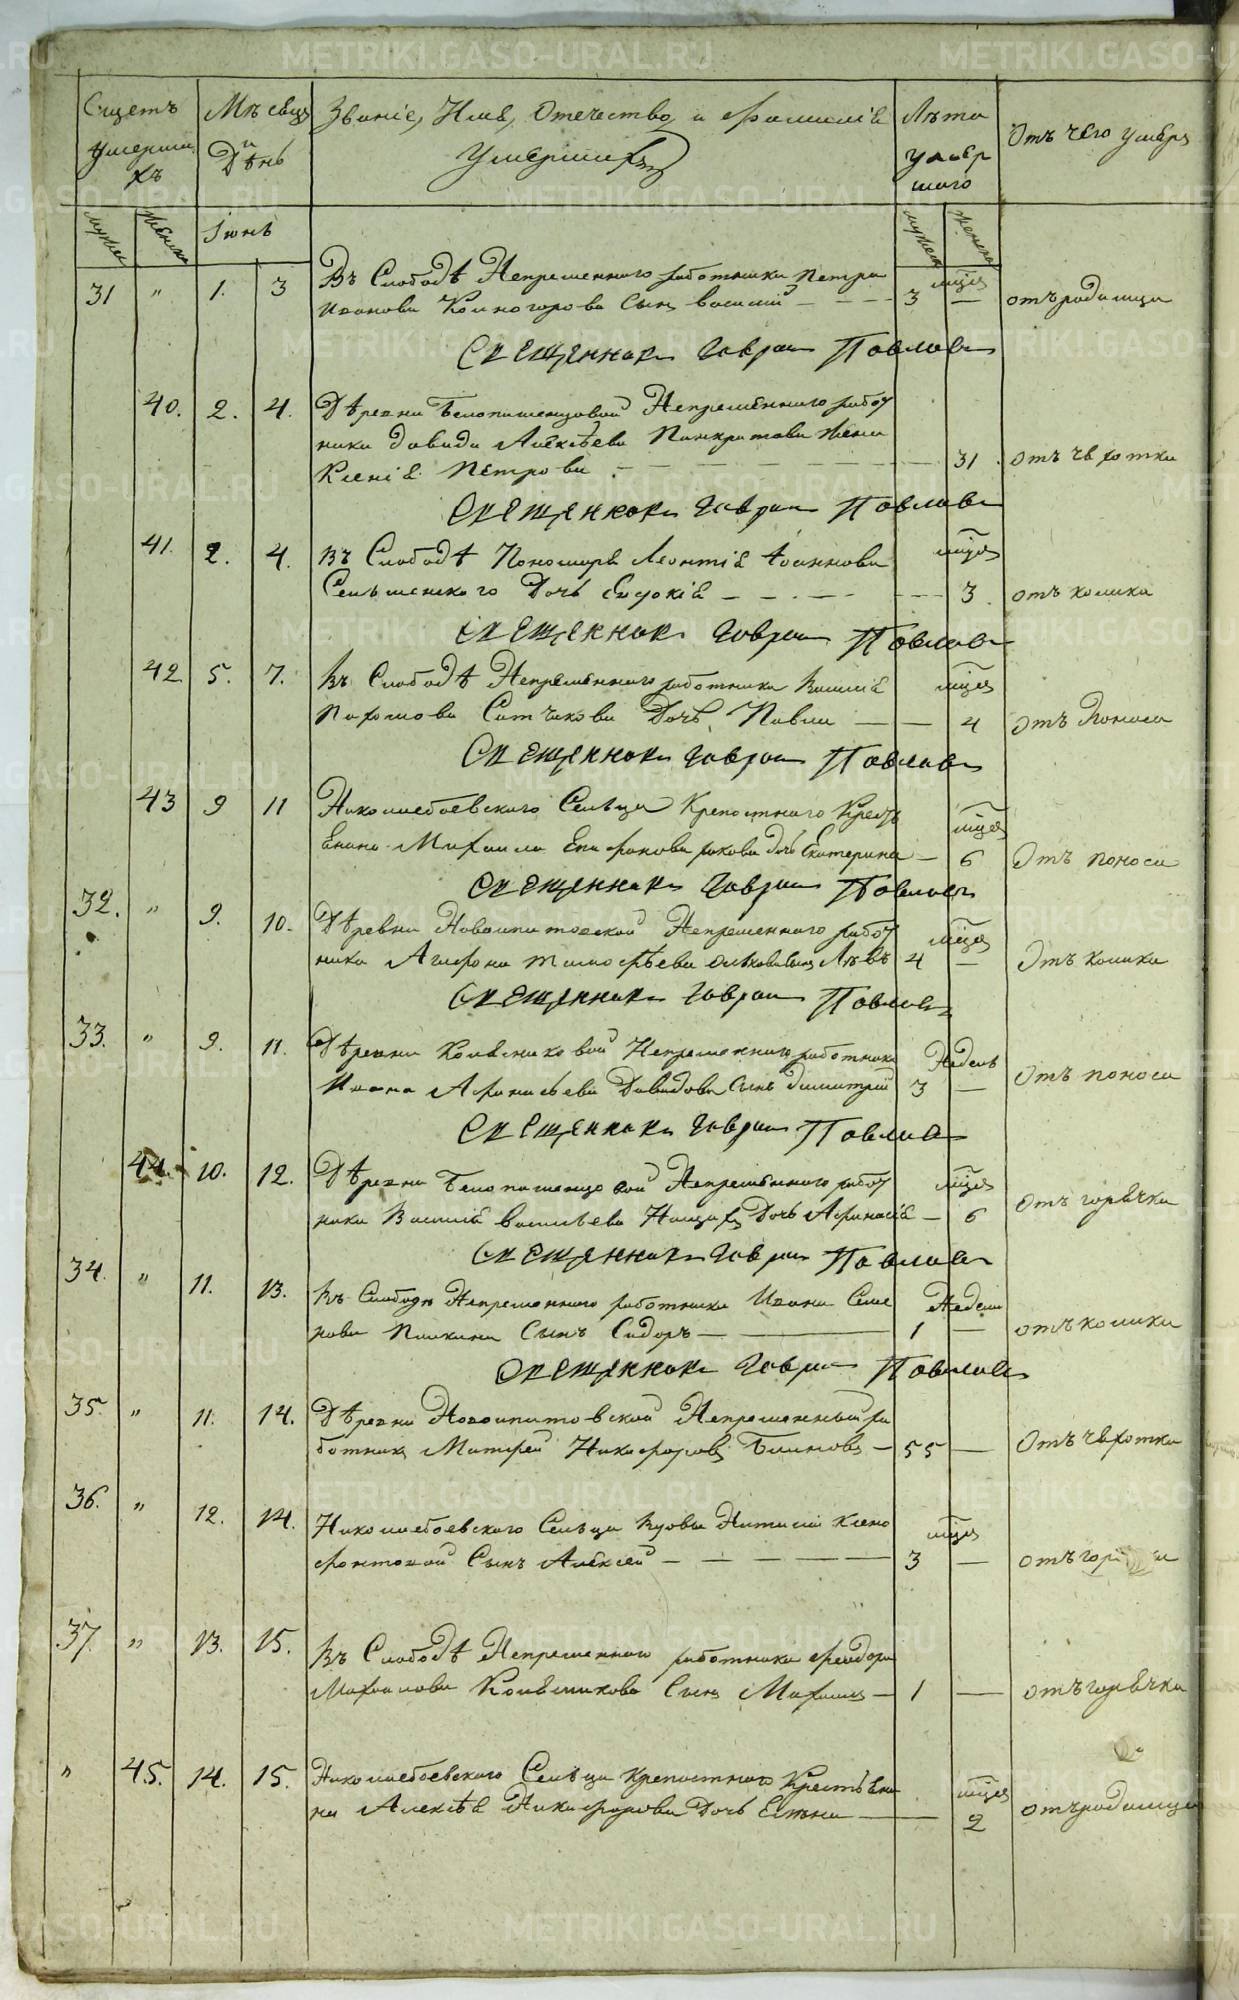 Сщетъ умерших хъ
Мѣсяцъ и День
Званіе, Имя, Отечество, и Фамилія Умершихъ
Лѣта умершаго
Отъ чего умеръ
мужеск женска
Іюнь
мужеск женска
31 " 1. 3 Въ Слободѣ Непременнаго работника Петра мѣця
Иванова Комогорова Сынъ Василій — 3 — отъ родимца
Священникъ Гаврилъ Павловъ
40. 2. 4. Дѣревни Белопашенцовой Непременнаго работ
ника Давида Алексѣева Панкратова жена
Ксенія Петрова — 31. отъ чехотки
Священникъ Гаврилъ Павловъ
41. 2. 4. Въ Слободѣ Пономаря Леонтія Іоаннова мѣця
Дочь Евдокія — 3. отъ колика
Священникъ Гаврилъ Павловъ
42 5. 7. Въ Слободѣ Непременнаго работника Василія мѣця
Пахомова Ситчихова Дочь — 4 отъ поноса
Священникъ Гаврилъ Павловъ
43 9 11 Николаебоевскаго Сельца Крепостнаго Крестъ мѣця
енина Михаила Епифанова Дочь Екатерина — 6 Отъ поноса
Священникъ Гаврилъ Павловъ
32. " 9. 10. Дѣревни Новоипатовской Непременнаго работ мѣця
ника Агафона Тимофѣева Сынъ Левъ 4 — Отъ колика
Священникъ Гаврилъ Павловъ
33. " 9. 11. Дѣревни Колесниковой Непременнаго работника Недель
Ивана Афанасьева Давидова Сынъ Димитрій 3 — Отъ поноса
Священникъ Гаврилъ Павловъ
44. 10. 12. Дѣревни Белопашенцовой Непременнаго работ мѣця
ника Василія Васильева Дочь Афанасія — 6 отъ горячки
Священникъ Гаврилъ Павловъ
34. " 11. 13. Въ Слободѣ Непременнаго работника Ивана Семе Недели
нова Сынъ Сидоръ — 1 — отъ колика
Священникъ Гаврилъ Павловъ
35. " 11. 14. Дѣревни Новоипатовской Непременный ра
ботникъ Матфей Никифоровъ Блиновъ — 55 — Отъ чехотки
36. " 12. 14. Николаебоевскаго Сельца Вдовы Наталіи Ксено мѣця
фонтовой Сынъ Алексей — 3 — отъ
37. " 13. 15. Въ Слободѣ Непременнаго работника Феодора
Михаилова Колесникова Сынъ Михаилъ — 1 — отъ горячки
" 45. 14. 15. Николаебоевскаго Сельца Крепостнаго Крестьени мѣця
на Алексѣя Никифорова Дочь Елена — 2 отъ родимца
METRIKI.GASO-URAL.RU